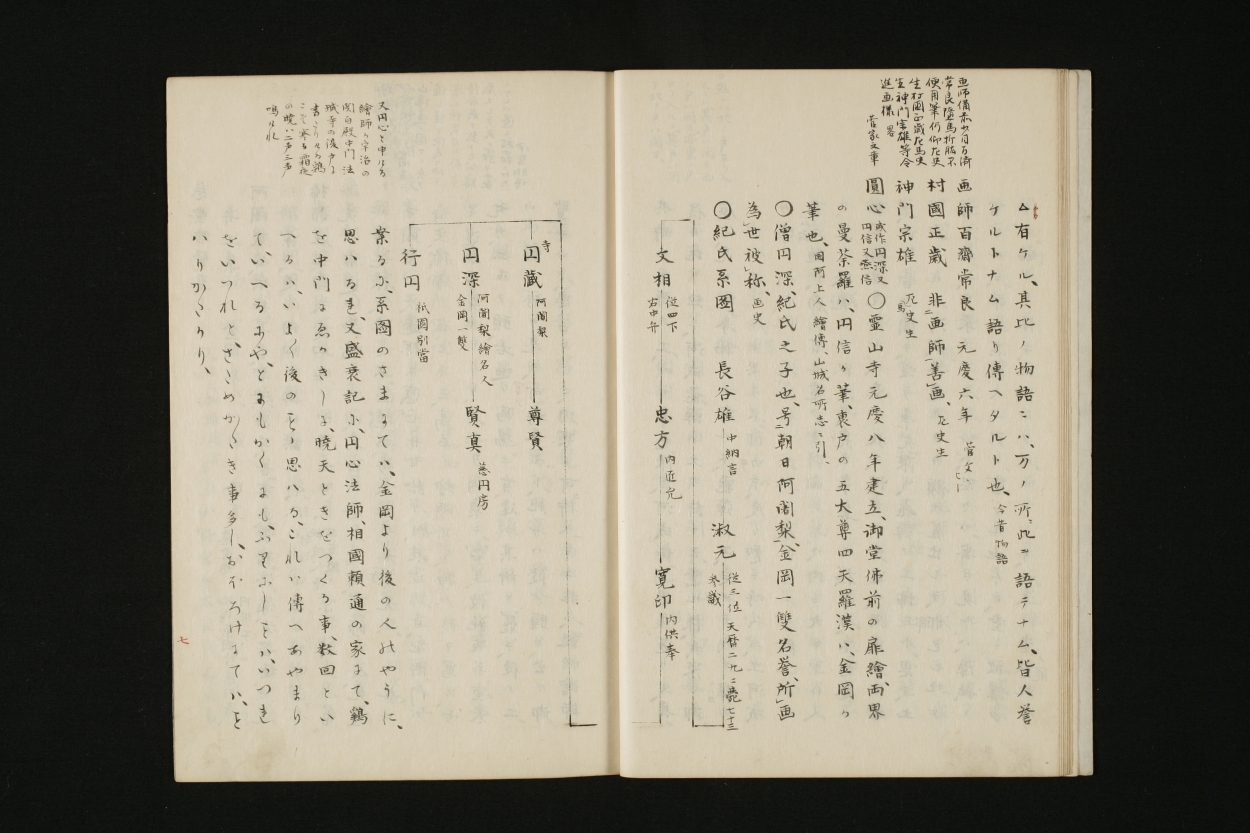 画師備前少目百済
常良墜馬折肱不
便用筆仍仰左史
生村國正歳左馬史
生神門宗雄等令
進画様 畧
菅家文章
ム有ケル、其比ノ物語ニハ、万ノ所ニ此ヲ語テナム、皆人誉
ケルトナム語リ傳ヘタルト也、今昔物語
画師百齋常良 元慶六年 菅文七
村國正歳 非画師善画、左史生
神門宗雄 左馬史生
圓心 或作円深又円信又燕信 〇霊山寺元慶八年建立、御堂佛前の扉繪、両界
の曼荼羅ハ、円信ヵ筆、裏戸の五大尊四天羅漢ハ、金岡ヵ
筆也、国阿上人繪傳、山城名所志ニ引、
〇僧円深、紀氏之子也、号朝日阿闍梨、金岡一雙名誉、所画
為世被称、画史
〇紀氏系圖 長谷雄 中納言 淑元 従三位 天暦二九二薨七十三 参議
文相 従四下 右中弁 忠方 内匠允 寛印 内供奉
又円心と申ける
繪師ヵ宇治の
関白殿中門法
城寺の後戸に
書たりける鶏
こそ寒き霜夜
の暁ハ二声三声
鳴けれ
寺
円蔵 阿闍梨 尊賢
円深 阿闍梨繪名人 金岡一雙 賢真 慈円房
行円 祇園別當
案るに、系圖のさまにてハ、金岡より後の人のやうに、
思ハるを、又盛衰記に、円心法師、相國頼通の家にて、鶏
を中門にゑかきしに、暁天ときをつくる事、数回とい
へるハ、いよく後のことゝ思ハる、これハ傳へあやまり
ていへるにや、ともかくにも、ふりにしことハ、いつれ
をいつれと、さためかたき事多し、おほろけにてハ、と
ハりかたかり、
七